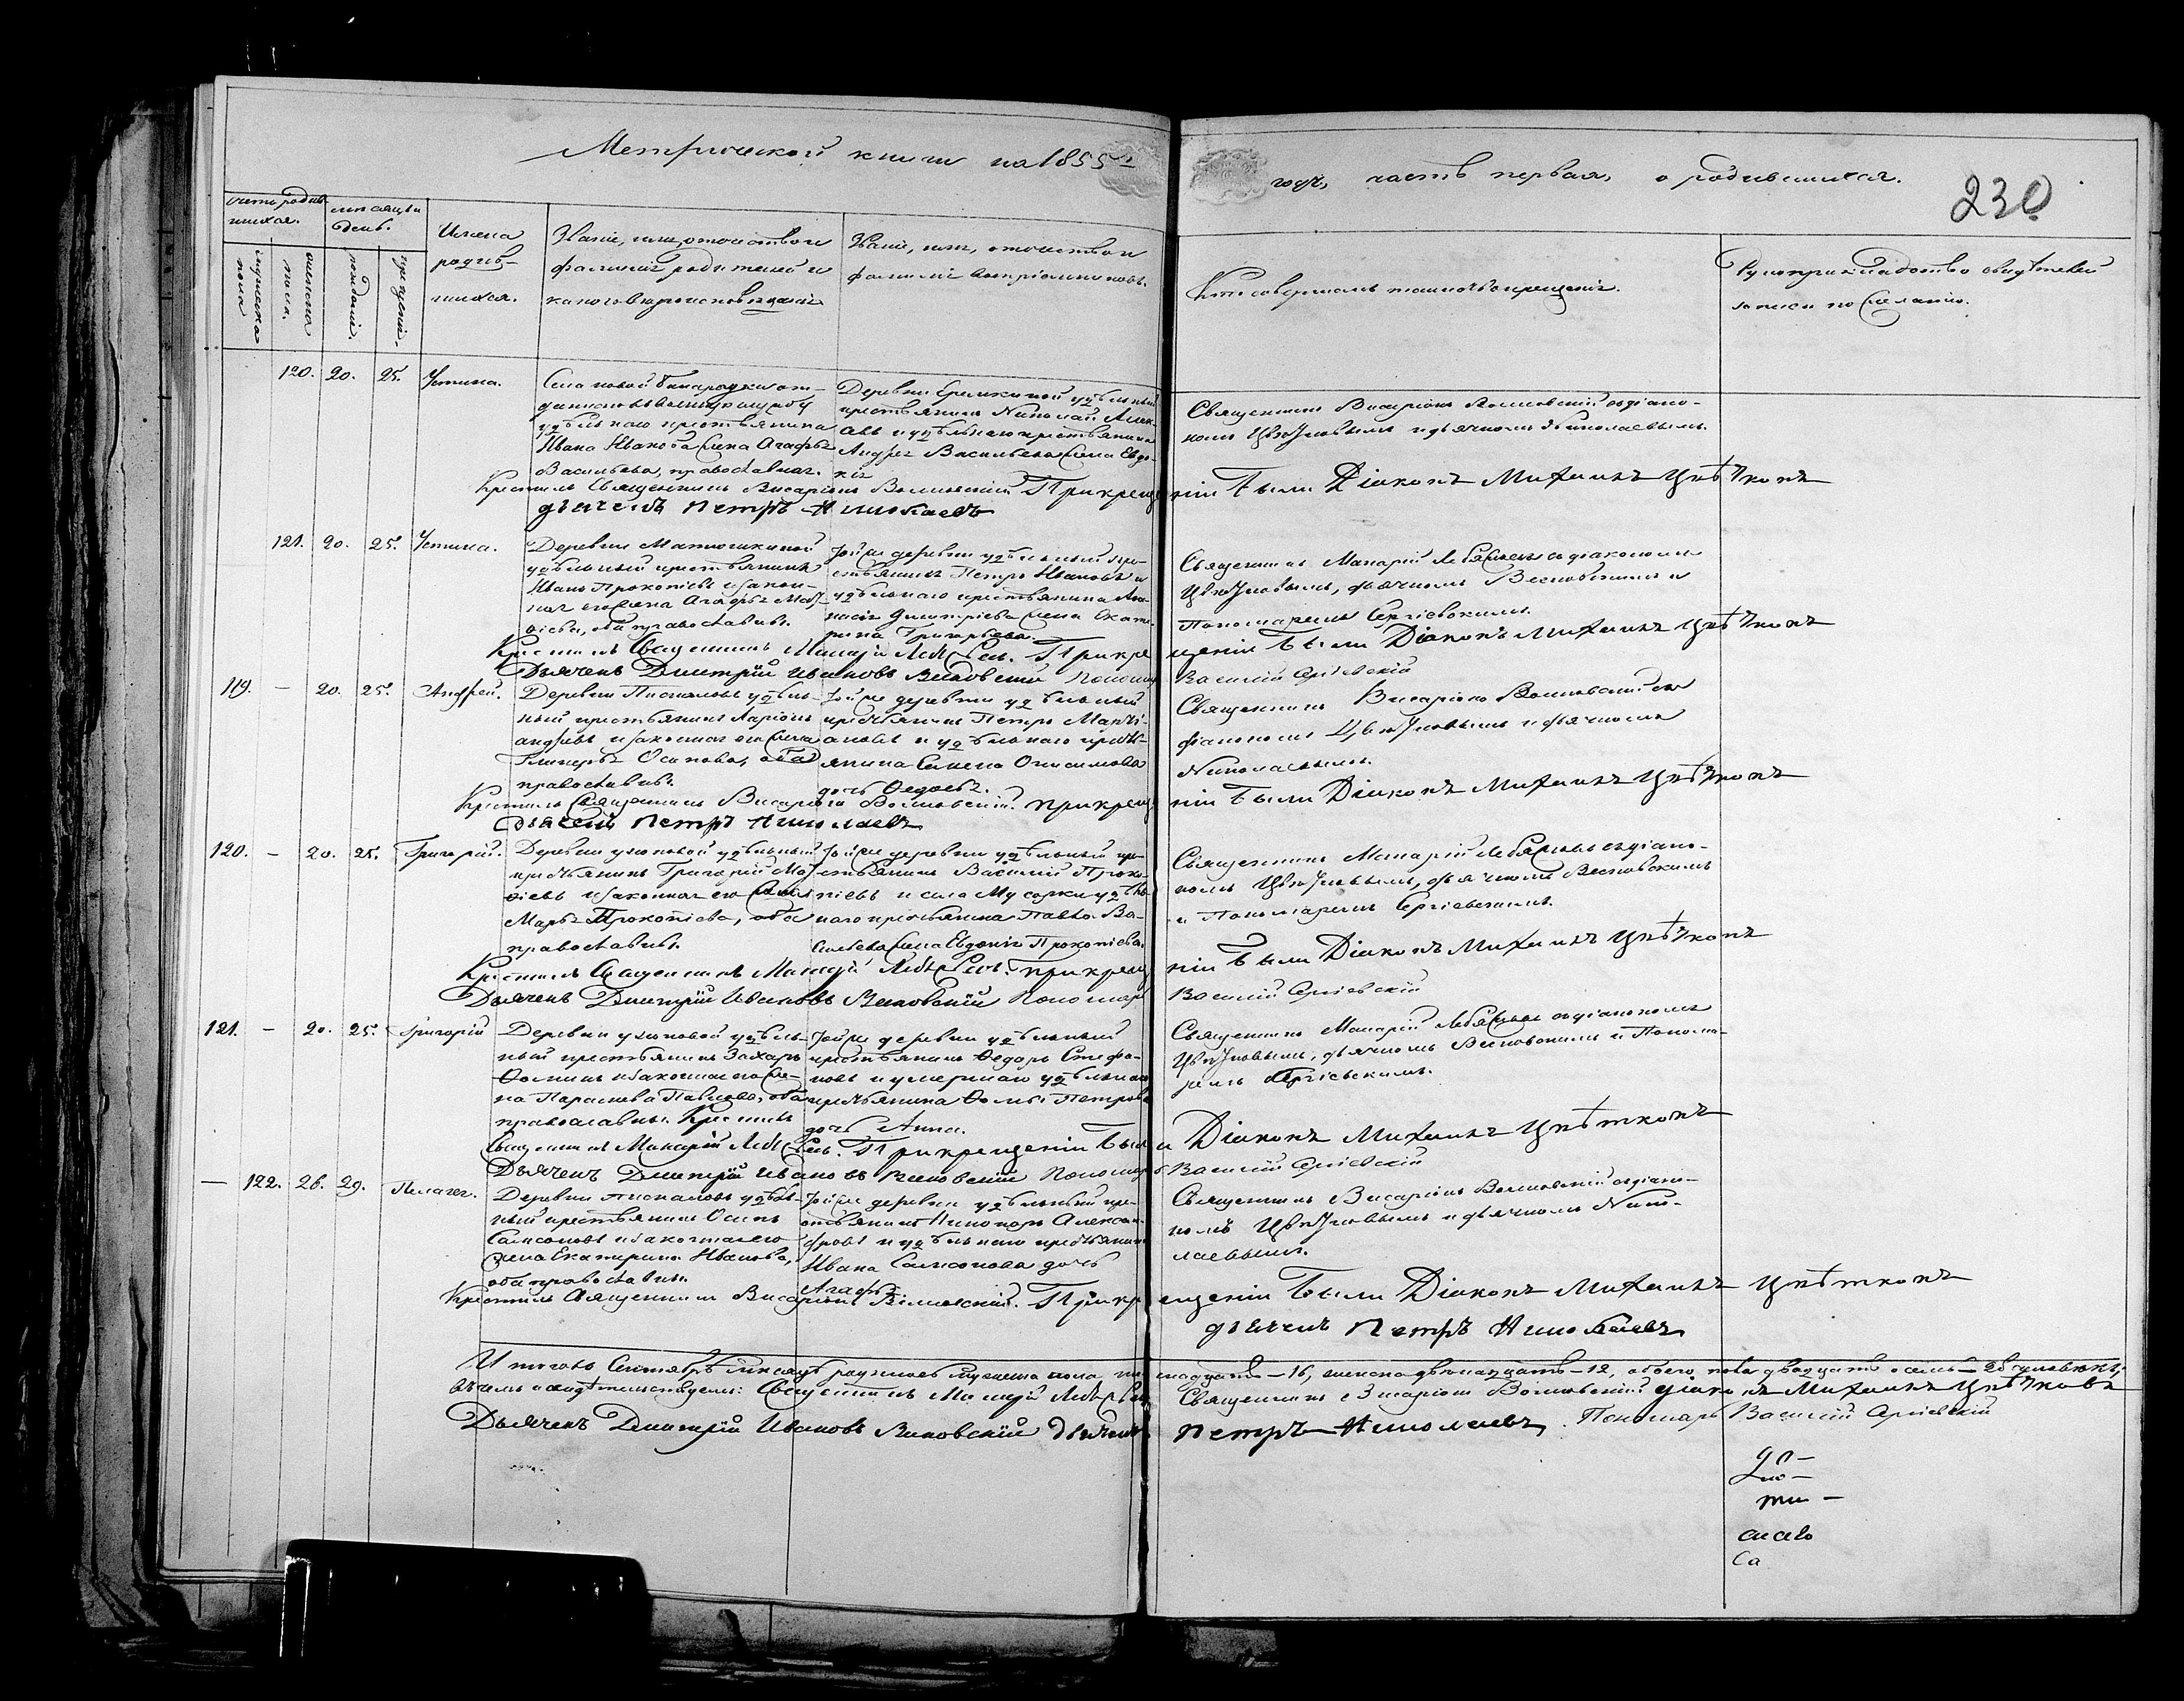 Метрической книги на 1855й
годъ, часть первая, о родившихся.
230
Счетъ родив-
шихся.
мѣсяцъ и
день.
мужеска
пола
женска
пола.
рожденія.
крещенія.
Имена
родив-
шихся.
Званіе, имя, отчество и
фамилія родителей и
какого вѣроисповѣданія
Званіе, имя, отчество и
фамилія воспріемниковъ.
Кто совершалъ таинство крещенія.
Рукоприкладство свидѣтелей
записи по желанію.
120. 20. 25. Устина.
Села новой Бинарадки от-
даннаго въ военную службу
удѣльнаго крестьянина
Ивана Иванова жена Агафья
Васильева, православная.
Деревни Ерѣмкиной удѣльный
крестьянинъ Николай
и удѣльнаго крестьянина
Андрея Васильева жена Евдо-
кія
Священникъ Висаріонъ Волковскій съ діако-
номъ Цвѣтковымъ и дьячкомъ Николаевымъ.
Крестилъ Священникъ Висаріонъ Волковскій При крещеніи были Діаконъ Михаилъ Цвѣтковъ
дьячекъ Петръ Николаевъ
121. 20. 25. Устина.
Деревни Матюшкиной
удѣльный крестьянинъ
Иванъ Прокопіевъ и закон-
ная его жена Агафья Мат-
ѳіева, оба православные.
Той же деревни удѣльный кре-
стьянинъ Петръ Ивановъ и
удѣльнаго крестьянина Аѳа-
насія Димитріева жена Екате-
рина Григорьева.
Священникъ Макарій Лебедевъ съ діакономъ
Цвѣтковымъ, дьячкомъ и
Пономаремъ Сергіевскимъ.
Крестилъ Священникъ Макарій Лебедевъ. При крещеніи были Діаконъ Михаилъ Цвѣтковъ
Дьячекъ Дмитрій Ивановъ Пономарь Василій Сергіевскій
119. — 20. 25. Андрей.
Деревни Пискаловъ удѣль-
ный крестьянинъ Ларіонъ
и законная его жена
Гликерья Осипова, оба
православные.
Той же деревни удѣльный
крестьянинъ Петръ
и удѣльнаго кресть-
янина Семена Онисимова
дочь Ѳедосья.
Священникъ Висаріонъ Волковскій съ
діакономъ Цвѣтковымъ и дьячкомъ
Николаевымъ.
Крестилъ Священникъ Висаріонъ Волковскій. при крещеніи были Діаконъ Михаилъ Цвѣтковъ
дьячекъ Петръ Николаевъ
120. — 20. 25. Григорій.
Деревни удѣльный
крестьянинъ Григорій Мат-
ѳіевъ и законная его жена
Марья Прокопіева, оба
православные.
Той же деревни удѣльный кре-
стьянинъ Василій Проко-
піевъ и села Мусорки удѣль-
наго крестьянина Павла Ва-
сильева жена Евдокія Прокопіева.
Священникъ Макарій Лебедевъ съ діако-
номъ Цвѣтковымъ, дьячкомъ
и Пономаремъ Сергіевскимъ.
Крестилъ Священникъ Макарій Лебедевъ. При крещеніи были Діаконъ Михаилъ Цвѣтковъ
Дьячекъ Дмитрій Ивановъ Пономарь Василій Сергіевскій
121. — 20. 25. Григорій
Деревни удѣль-
ный крестьянинъ Захаръ
Ѳоминъ и законная его же-
на Параскева Павлова, оба
православные. Крестилъ
Той же деревни удѣльный
крестьянинъ Ѳедоръ Стефа-
новъ и умершаго удѣльнаго
крестьянина Ѳомы Петрова
дочь Анна.
Священникъ Макарій Лебедевъ съ діакономъ
Цвѣтковымъ, дьячкомъ и Понома-
ремъ Сергіевскимъ.
Священникъ Макарій Лебедевъ. При крещеніи были Діаконъ Михаилъ Цвѣтковъ
Дьячекъ Дмитрій Ивановъ Пономарь Василій Сергіевскій
— 122. 26. 29. Пелагея.
Деревни Пискаловъ удѣль-
ный крестьянинъ Осипъ
Самсоновъ и законная его
жена Екатерина Иванова,
оба православные.
Той же деревни удѣльный кре-
стьянинъ Никаноръ Алексан-
дровъ и удѣльнаго крестьянина
Ивана Самсонова дочь
Агафья
Священникъ Висаріонъ Волковскій съ діако-
номъ Цвѣтковымъ и дьячкомъ Нико-
лаевымъ.
Крестилъ Священникъ Висаріонъ Волковскій. При крещеніи были Діаконъ Михаилъ Цвѣтковъ
дьячекъ Петръ Николаевъ
Итого въ Сентябрѣ мѣсяцѣ родилось мужеска пола, шестнадцать — 16, женска двѣнадцать — 12, обоего пола двадцать осемь — 28 человѣкъ;
въ чемъ и свидѣтельствуемъ: Священникъ Макарій Лебедевъ Священникъ Висаріонъ Волковскій діаконъ Михаилъ Цвѣтковъ
Дьячекъ Дмитрій Ивановъ Дьячекъ Петръ Николаевъ. Пономарь Василій Сергіевскій